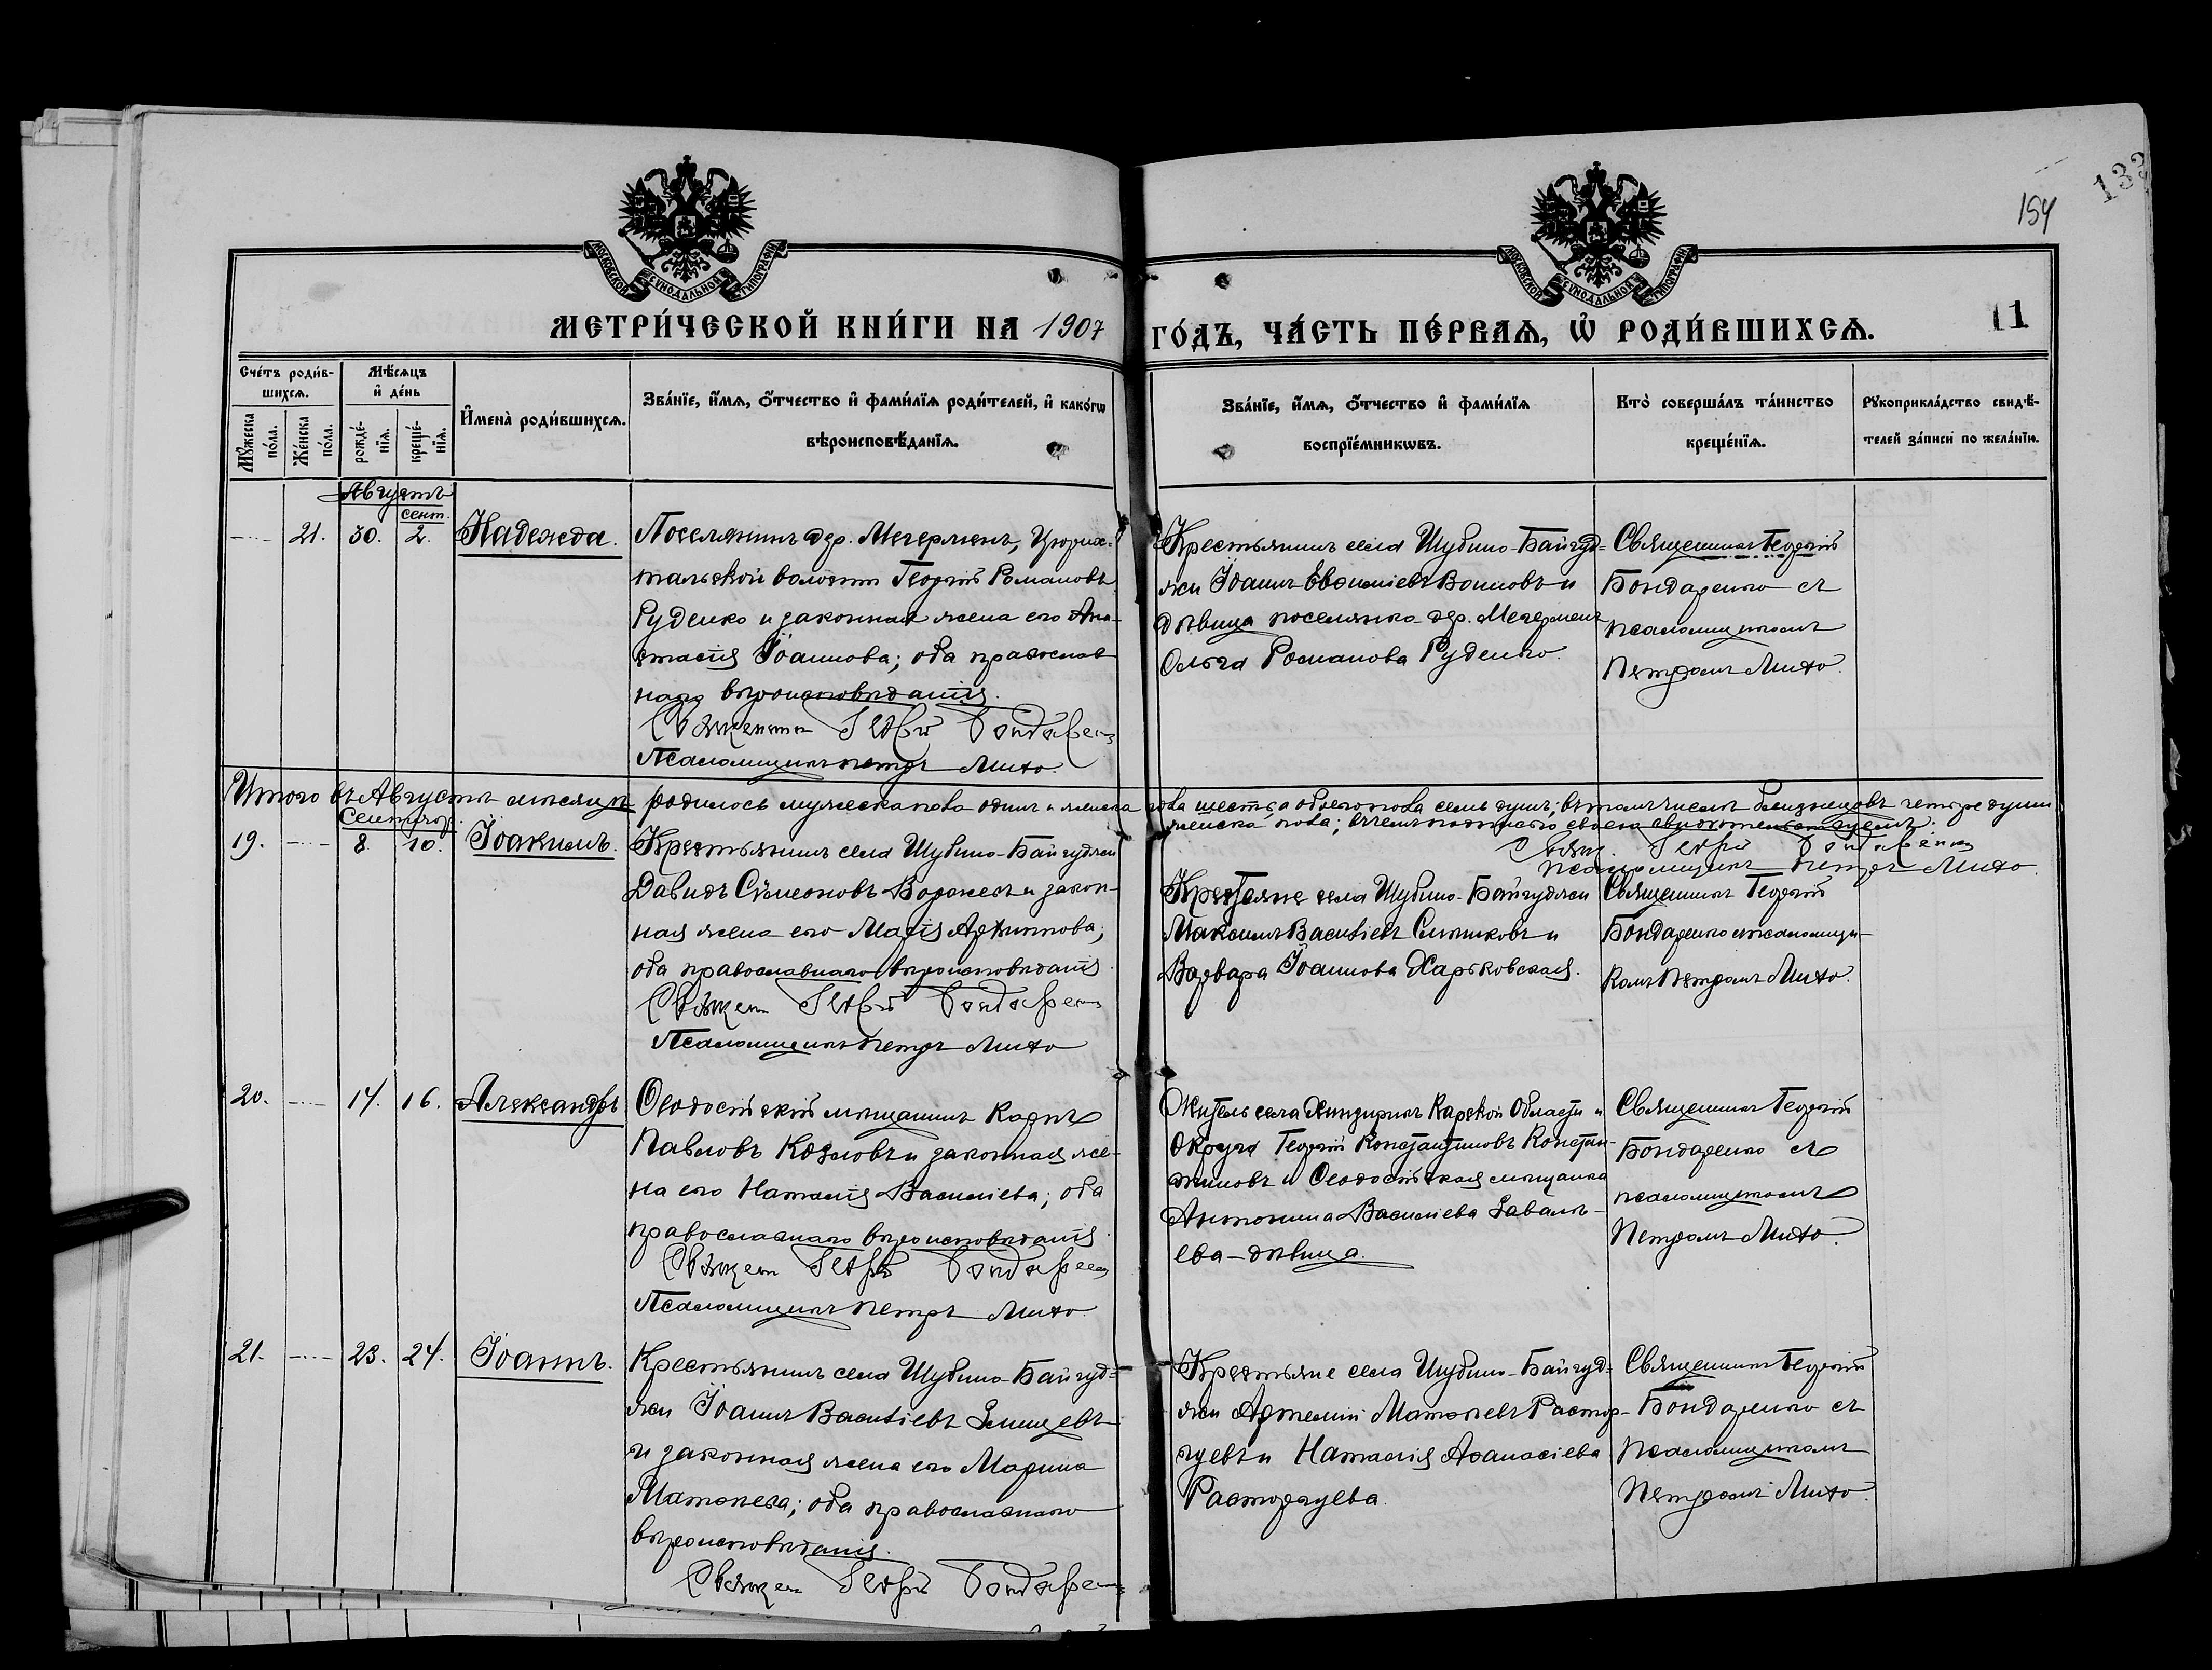 154
133
МОСКОВСКОЙ СѴНОДАЛЬНОЙ ТИПОГРАФІИ
МОСКОВСКОЙ СѴНОДАЛЬНОЙ ТИПОГРАФІИ
МЕТРИ́ЧЕСКОЙ КНИ́ГИ НА 1907 ГО́ДЪ, ЧА́СТЬ ПЕ́РВАѦ, Ѡ҆ РОДИ́ВШИХСѦ.
11
Сче́тъ роди́в-
шихсѧ.
Мꙋ́жеска по́ла.
Же́нска по́ла.
Мѣ́сѧцъ
и҆ де́нь
рожде́-
нїѧ.
креще́-
нїѧ.
И҆мена̀ роди́вшихсѧ.
Зва́нїе, и҆́мѧ, ѻ҆́тчество и҆ фами́лїѧ роди́телей, и҆ како́гѡ
вѣроисповѣ́данїѧ.
Зва́нїе, и҆́мѧ, ѻ҆́тчество и҆ фами́лїѧ
воспрїе́мникѡвъ.
Кто̀ соверша́лъ та́инство
креще́нїѧ.
Рꙋкоприкла́дство свидѣ́-
телей за́писи по жела́нїю.
Августъ
сент.
21. 30. 2. Надежда.
Поселянинъ дер. Мегерменъ, Цюрих-
тальской волости Георгій Романовъ
Руденко и законная жена его Ана-
стасія Іоаннова; оба православ
наго вѣроисповѣданія.
Священникъ Георгій Бондаренко
Псаломщикъ Петръ Мито.
Крестьянинъ села Шубино-Байгуд-
жи Іоаннъ Евѳиміевъ Воиновъ и
дѣвица поселянка дер. Мегерменъ
Ольга Романова Руденко.
Священникъ Георгій
Бондаренко съ
псаломщикомъ
Петромъ Мито.
Итого въ Августѣ мѣсяцѣ родилось мужеска пола одинъ и женска пола шесть, а обоего пола семь душъ; въ томъ числѣ близнецовъ четыре души
женска пола; въ чемъ подписью своею свидѣтельствуемъ:
Свящ. Георгій Бондаренко
псаломщикъ Петръ Мито.
Сентябр.
19. 8. 10. Іоакимъ.
Крестьянинъ села Шубино-Байгуджи
Давидъ Сѵмеоновъ Воронежъ и закон-
ная жена его Марія Архипова;
оба православнаго вѣроисповѣданія.
Священ Георгій Бондаренко
Псаломщикъ Петръ Мито
Крестьяне села Шубино-Байгуджи
Максимъ Васильевъ Ситниковъ и
Варвара Іоаннова Харьковская.
Священникъ Георгій
Бондаренко съ псаломщи-
комъ Петромъ Мито.
20. 14. 16. Александръ
Ѳеодосійскій мѣщанинъ Карпъ
Павловъ Козловъ и законная же-
на его Наталія Василіева; оба
православнаго вѣроисповѣданія.
Священ Георгій Бондаренко
Псаломщикъ Петръ Мито.
Житель села Карской Области и
Округа Георгій Константиновъ Констан-
тиновъ и Ѳеодосійская мѣщанка
Антонина Василіева
ева-дѣвица.
Священникъ Георгій
Бондаренко съ
псаломщикомъ
Петромъ Мито.
21. 23. 24. Іоаннъ.
Крестьянинъ села Шубино-Байгуд-
жи Іоаннъ Васильевъ
и законная жена его Марина
Матѳеева; оба православнаго
вѣроисповѣданія.
Священ Георгій Бондаренко
Крестьяне села Шубино-Байгуд-
жи Артемій Матѳеевъ Растор-
гуевъ и Наталія Аѳанасіева
Расторгуева.
Священникъ Георгій
Бондаренко съ
псаломщикомъ
Петромъ Мито.